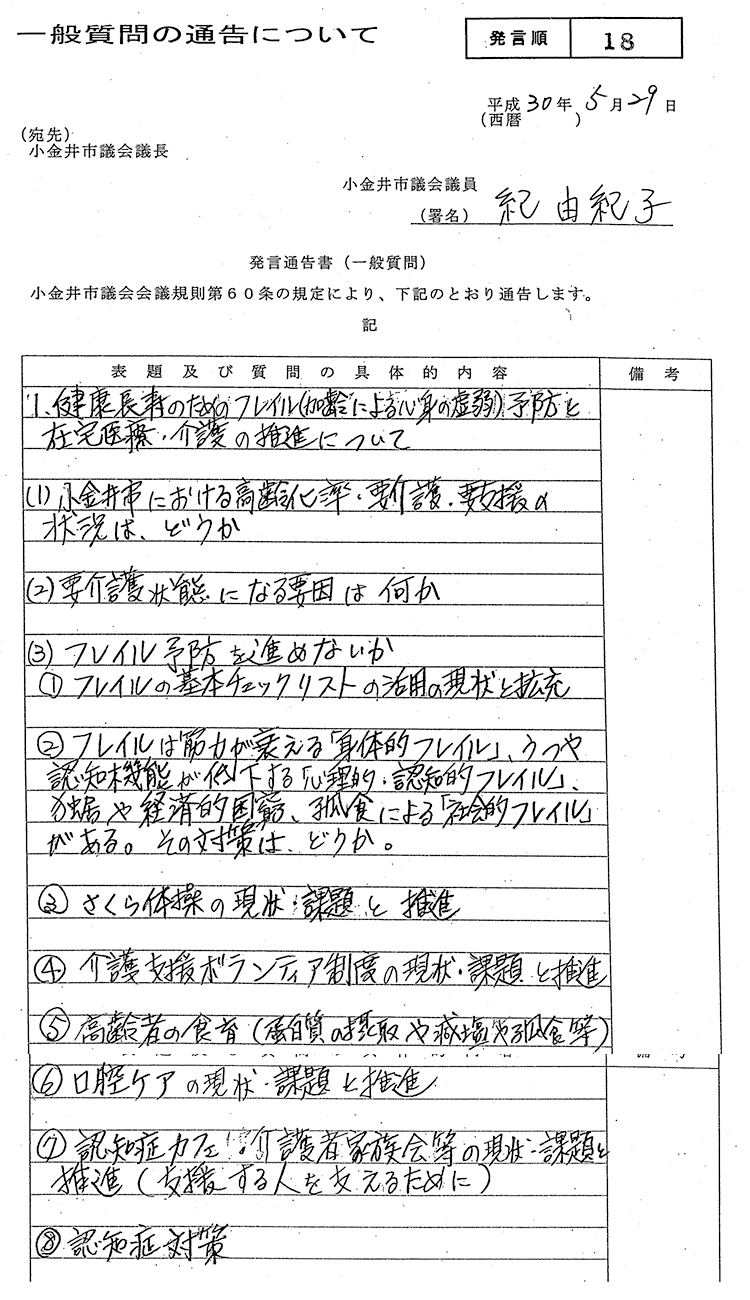 一般質問の通告について
発言順 18
平成30年5月29日
(西暦 )
(宛先)
小金井市議会議長
小金井市議会議員
(署名) 紀由紀子
発言通告書(一般質問)
小金井市議会会議規則第60条の規定により、下記のとおり通告します。
記
表題及び質問の具体的内容 備考
1.健康長寿のためのフレイル(加齢による心身の虚弱)予防と
在宅医療・介護の推進について
(1)小金井市における高齢化率・要介護・要支援の
状況は、どうか
(2)要介護状態になる要因は何か
(3)フレイル予防を進めないか
①フレイルの基本チェックリストの活用の現状と拡充
②フレイルは筋力が衰える「身体的フレイル」、うつや
認知機能が低下する「心理的・認知的フレイル」、
独居や経済的困窮、孤食による「社会的フレイル」
がある。その対策は、どうか。
③さくら体操の現状・課題と推進
④介護支援ボランティア制度の現状・課題と推進
⑤高齢者の食育(蛋白質の摂取や減塩や孤食等)
⑥口腔ケアの現状・課題と推進
⑦認知症カフェ・介護者家族会等の現状・課題と
推進(支援する人を支えるために)
⑧認知症対策